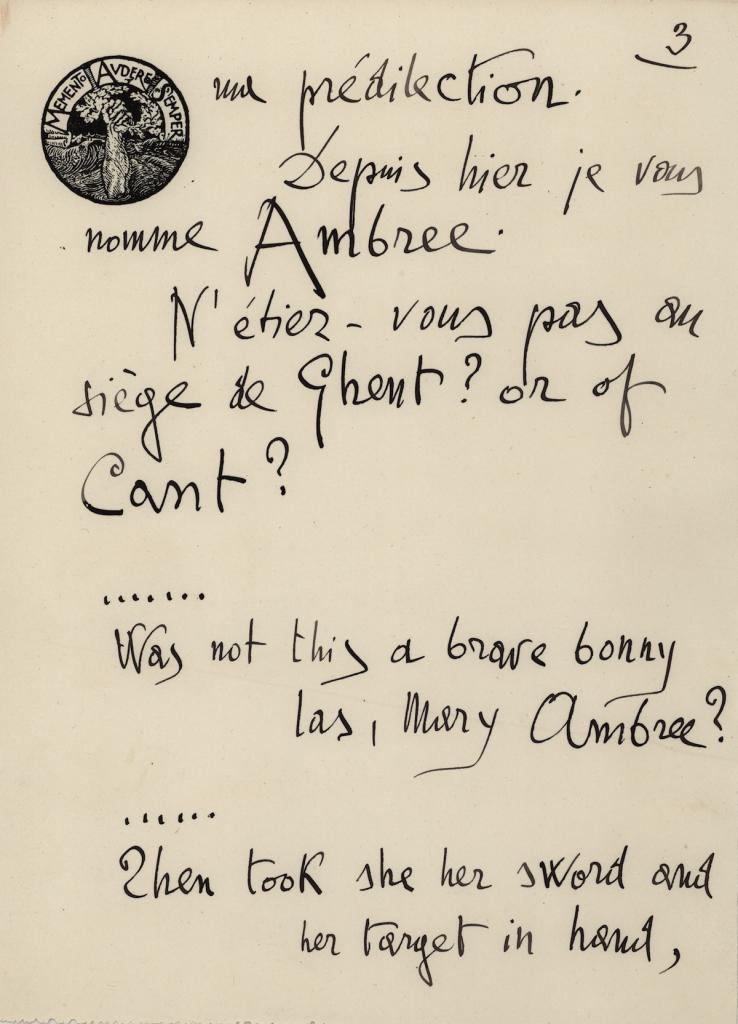 3
MEMENTO AVDERE SEMPER
une prédilection.
Depuis hier je vous
nomme Ambree.
N'étiez-vous pas au
siège de Ghent? or of
Cant?
.......
Was not this a brave bonny
las, Mary Ambree?
......
Then took she her sword and
her target in hand,